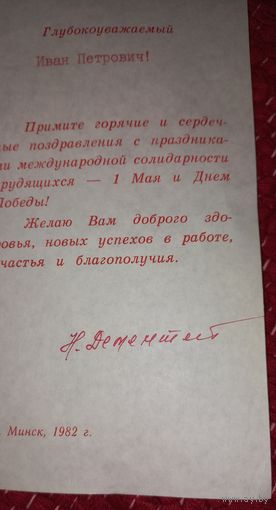 Глубокоуважаемый
Иван Петрович!
Примите горячие и сердеч-
ные поздравления с праздника-
ми международной солидарности
рудящихся — 1 Мая и Днем
Победы!
Желаю Вам доброго здо-
ровья, новых успехов в работе,
счастья и благополучия.
Н. Дементей
. Минск, 1982 г.